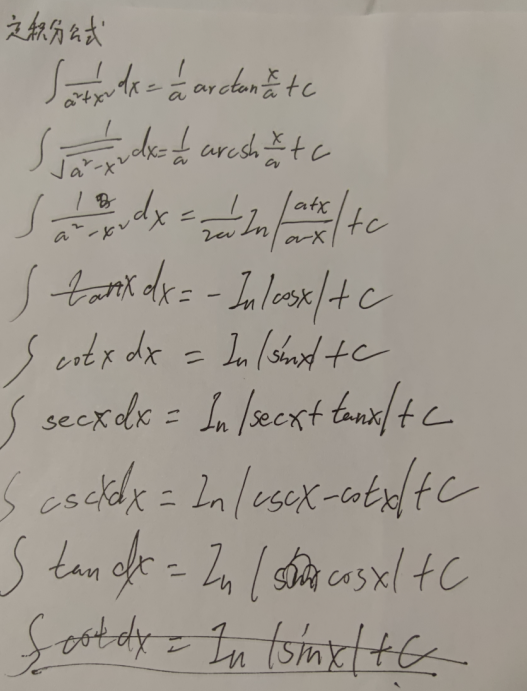 定积分公式
∫ 1/(a²+x²) dx = 1/a arctan x/a + C
∫ 1/√(a²-x²) dx = 1/a arcsh x/a + C
∫ 1/(a²-x²) dx = 1/2a In |(a+x)/(a-x)| + C
∫ tanx dx = - In |cosx| + C
∫ cotx dx = In |sinx| + C
∫ secx dx = In |secx + tanx| + C
∫ cscx dx = In |cscx - cotx| + C
∫ tan dx = In | cosx| + C
∫ cot dx = In |sinx| + C